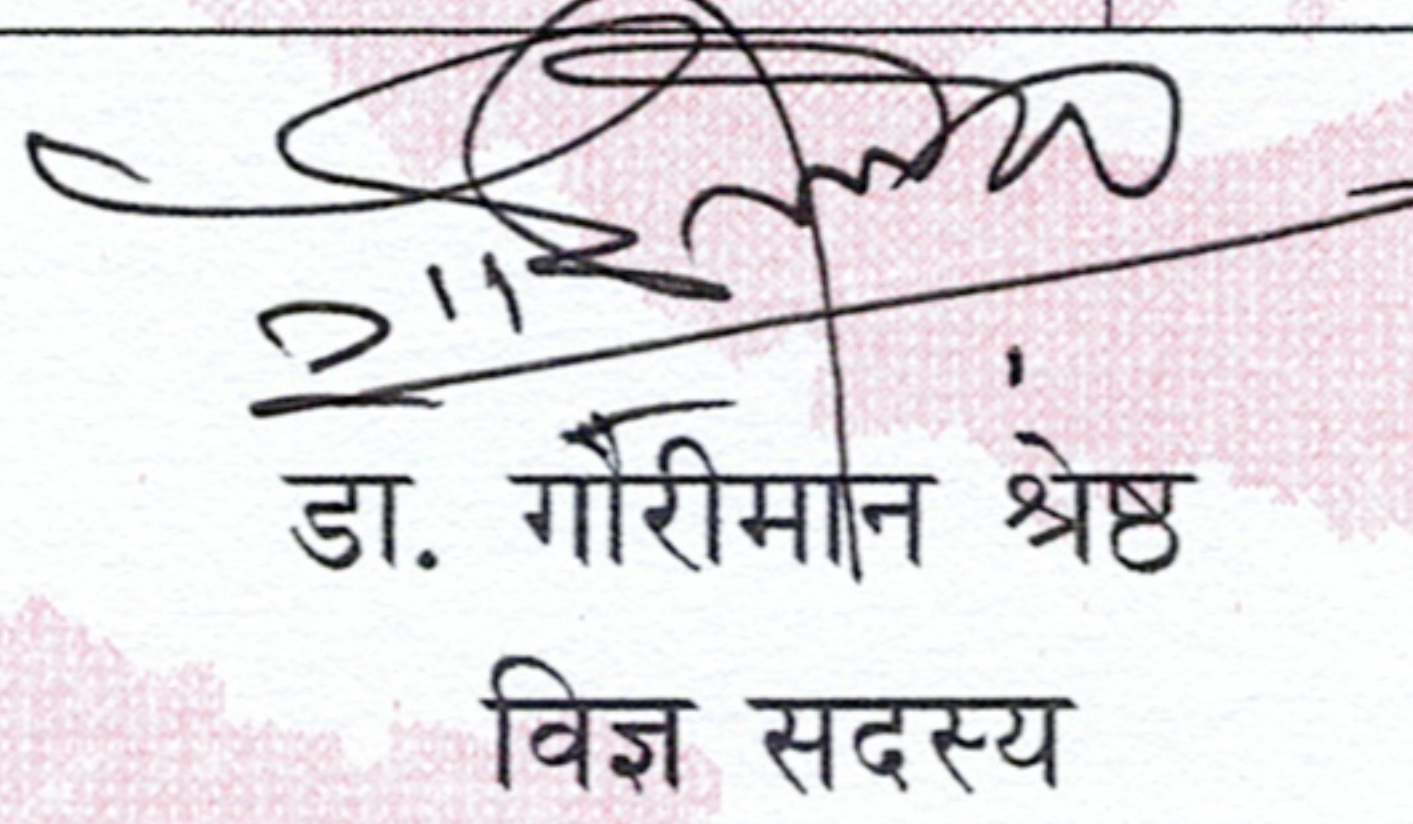 डा. गौरीमान श्रेष्ठ
विज्ञ सदस्य